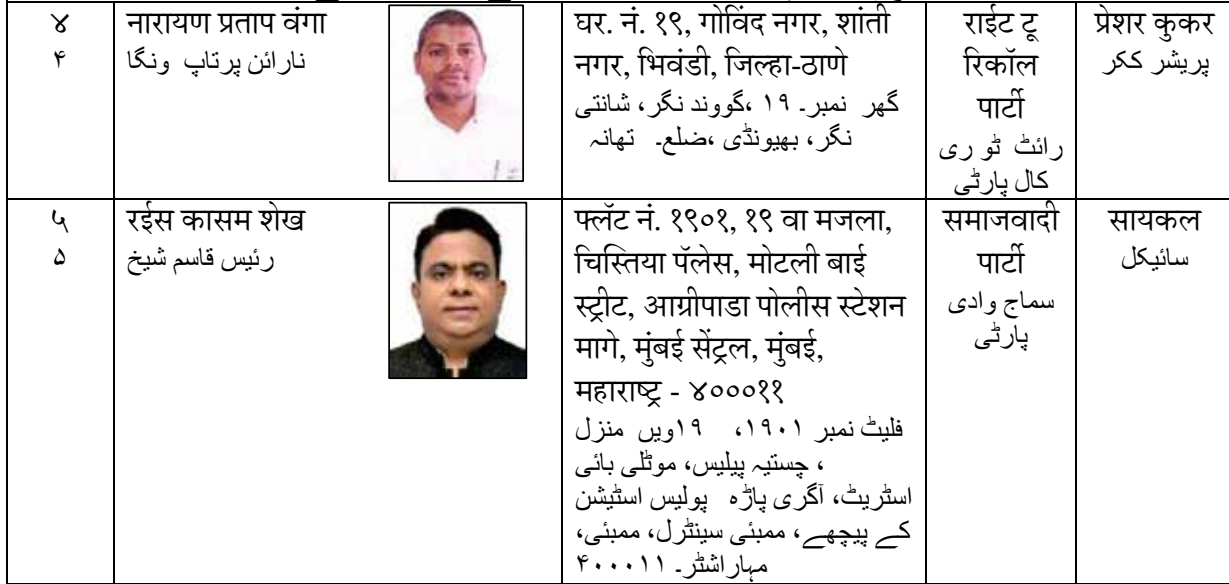 ४
۴
नारायण प्रताप वंगा
نارائن پرتاپ ونگا
घर. नं. १९, गोविंद नगर, शांती
नगर, भिवंडी, जिल्हा-ठाणे
گھر نمبر۔ ۱۹ ،گووند نگر، شانتی
نگر، بھیونڈی ،ضلع۔ تھانہ
राईट टू
रिकॉल
पार्टी
رائٹ ٹو ری
کال پارٹی
प्रेशर कुकर
پریشر ککر
५
۵
रईस कासम शेख
رئیس قاسم شیخ
फ्लॅट नं. १९०१, १९ वा मजला,
चिस्तिया पॅलेस, मोटली बाई
स्ट्रीट, आग्रीपाडा पोलीस स्टेशन
मागे, मुंबई सेंट्रल, मुंबई,
महाराष्ट्र - ४०००११
فلیٹ نمبر ۱۹۰۱، ۱۹ویں منزل
، چستیہ پیلیس، موٹلی بائی
اسٹریٹ، آگری پاڑہ پولیس اسٹیشن
کے پیچھے، ممبئی سینٹرل، ممبئی،
مہاراشٹر۔ ۴۰۰۰۱۱
समाजवादी
पार्टी
سماج وادی
پارٹی
सायकल
سائیکل